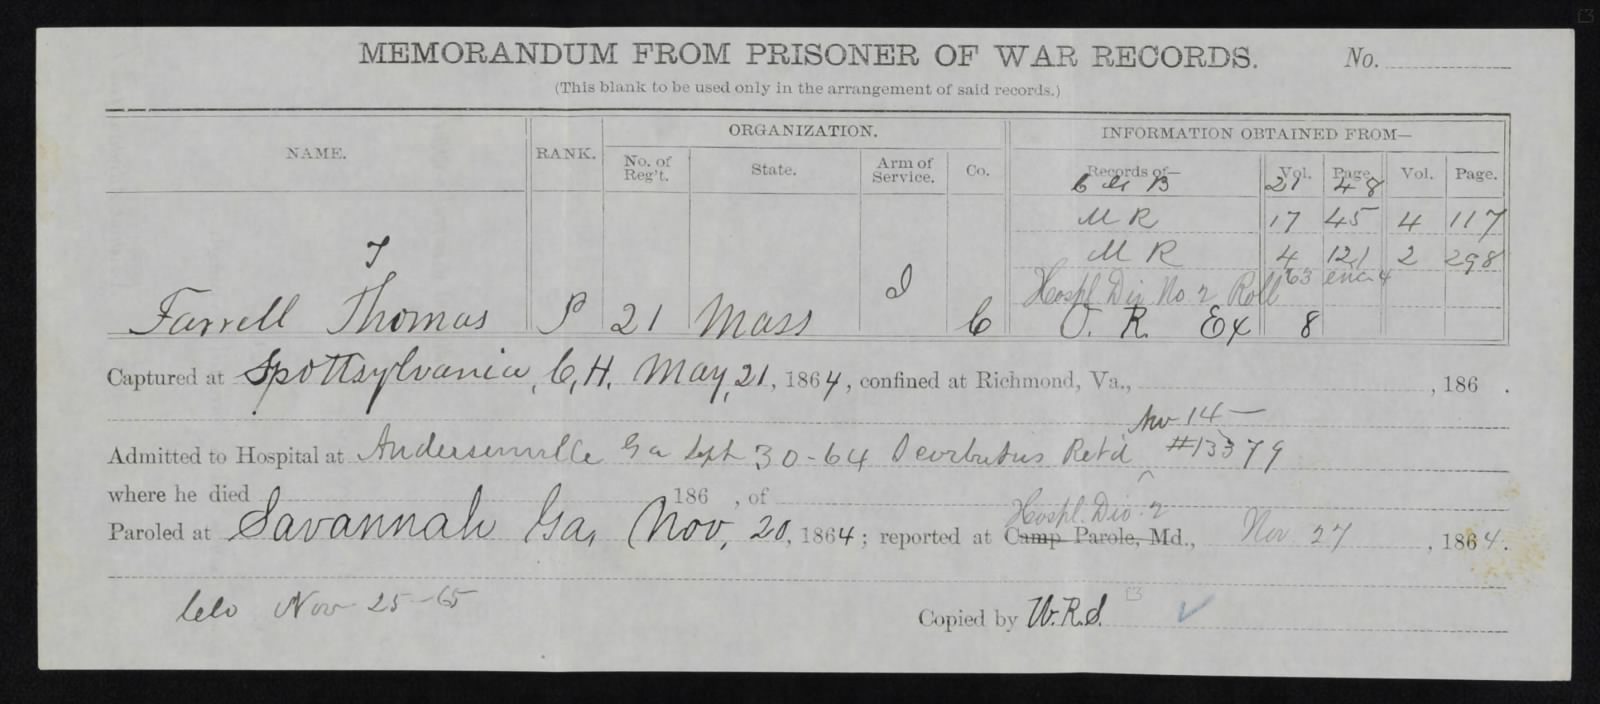 MEMORANDUM FROM PRISONER OF WAR RECORDS. No.
(This blank to be used only in the arrangement of said records.)
NAME. RANK. ORGANIZATION. INFORMATION OBTAINED FROM—
No. of Reg't. State. Arm of Service. Co. Records of— Vol. Page. Vol. Page.
21 48
M R 17 45 4 117
M R 4 121 2 298
Hospl. Div No 2 Roll 63 enc 4
Farrell Thomas P 21 Mass I C O. R. Ex 8
Captured at Spottsylvania, C, H. May, 21, 1864, confined at Richmond, Va., , 186 .
Nov 14 —
Admitted to Hospital at Andersonville Ga Sept 30-64 Scorbutus Ret'd #13379
where he died 186 , of
Hospl. Div. 2
Paroled at Savannah Ga, Nov, 20, 1864; reported at Camp Parole, Md., Nov 27, 1864.
Nov 25-65
Copied by W.R.S.